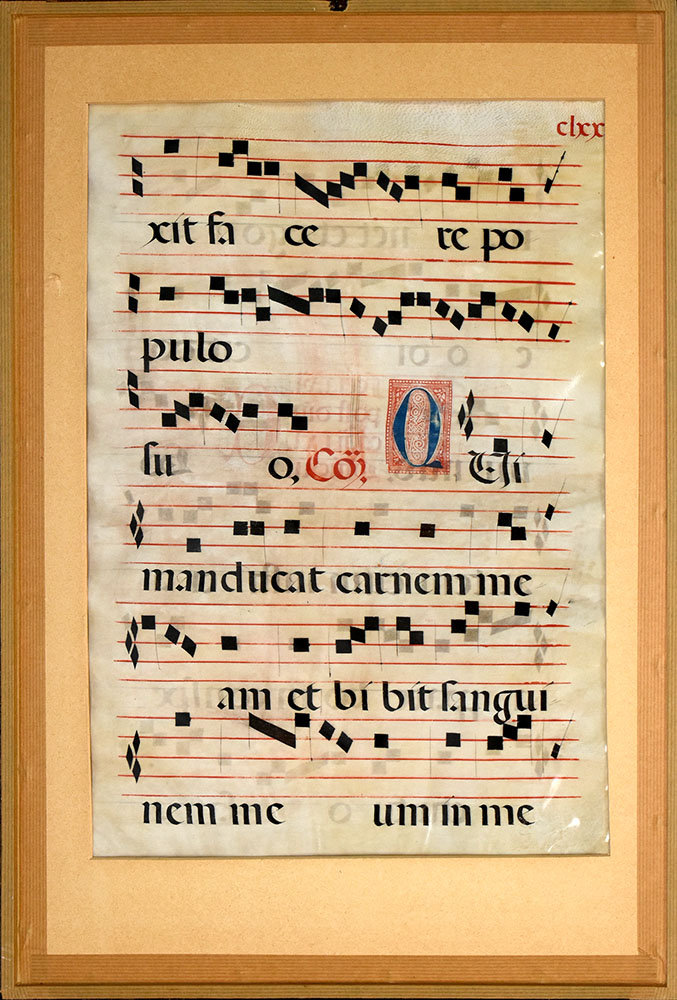 clxx
xit fa ce re po
pulo
su o, Cō: QUi
manducat carnem me
am et bi bit sangui
nem me um in me